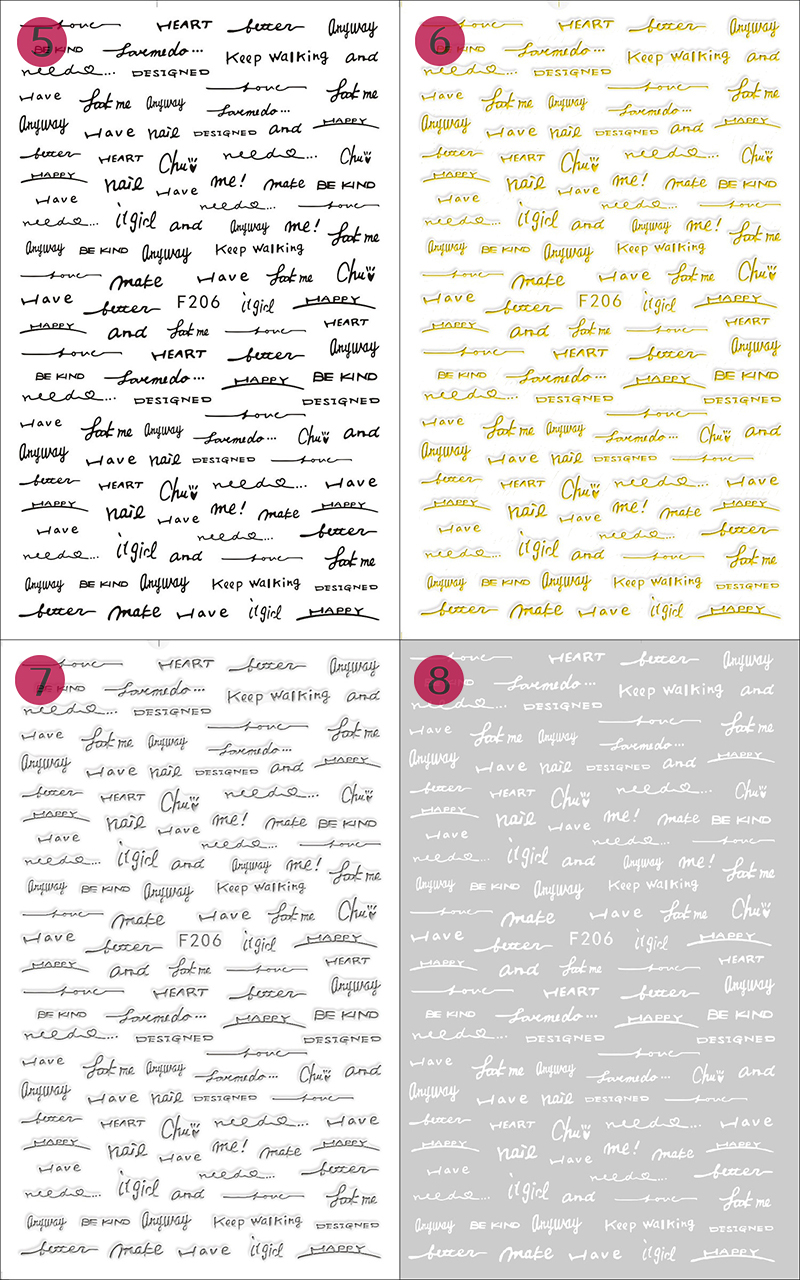 5
Love HEART better Anyway
BE KIND Lovemedo... Keep walking and
need... DESIGNED
Love
Have Look me Anyway Look me
Lovemedo...
Anyway Have nail DESIGNED and HAPPY
better HEART Chu need... Chu
HAPPY nail Have me! make BE KIND
Have need... Love
need... itgirl and Anyway me! Look me
Anyway BE KIND Anyway Keep walking
Love make Have Look me Chu
Have better F206 itgirl HAPPY
HAPPY and Look me Love HEART
Love HEART better Anyway
BE KIND Lovemedo... HAPPY BE KIND
need... DESIGNED DESIGNED
Love
Have Look me Anyway Lovemedo... Chu and
Anyway Have nail DESIGNED Love
better HEART Chu need... Have
HAPPY nail Have me! make HAPPY
Have need... better
need... itgirl and Love Look me
Anyway BE KIND Anyway Keep walking DESIGNED
better make Have itgirl HAPPY
6
Love HEART better Anyway
BE KIND Lovemedo... Keep walking and
need... DESIGNED
Love
Have Look me Anyway Look me
Lovemedo...
Anyway Have nail DESIGNED and HAPPY
better HEART Chu need... Chu
HAPPY nail Have me! make BE KIND
Have need... Love
need... itgirl and Anyway me! Look me
Anyway BE KIND Anyway Keep walking
Love make Have Look me Chu
Have better F206 itgirl HAPPY
HAPPY and Look me Love HEART
Love HEART better Anyway
BE KIND Lovemedo... HAPPY BE KIND
need... DESIGNED DESIGNED
Love
Have Look me Anyway Lovemedo... Chu and
Anyway Have nail DESIGNED Love
better HEART Chu need... Have
HAPPY nail Have me! make HAPPY
Have need... better
need... itgirl and Love Look me
Anyway BE KIND Anyway Keep walking DESIGNED
better make Have itgirl HAPPY
7
Love HEART better Anyway
BE KIND Lovemedo... Keep walking and
need... DESIGNED
Love
Have Look me Anyway Look me
Lovemedo...
Anyway Have nail DESIGNED and HAPPY
better HEART Chu need... Chu
HAPPY nail Have me! make BE KIND
Have need... Love
need... itgirl and Anyway me! Look me
Anyway BE KIND Anyway Keep walking
Love make Have Look me Chu
Have better F206 itgirl HAPPY
HAPPY and Look me Love HEART
Love HEART better Anyway
BE KIND Lovemedo... HAPPY BE KIND
need... DESIGNED DESIGNED
Love
Have Look me Anyway Lovemedo... Chu and
Anyway Have nail DESIGNED Love
better HEART Chu need... Have
HAPPY nail Have me! make HAPPY
Have need... better
need... itgirl and Love Look me
Anyway BE KIND Anyway Keep walking DESIGNED
better make Have itgirl HAPPY
8
Love HEART better Anyway
BE KIND Lovemedo... Keep walking and
need... DESIGNED
Love
Have Look me Anyway Look me
Lovemedo...
Anyway Have nail DESIGNED and HAPPY
better HEART Chu need... Chu
HAPPY nail Have me! make BE KIND
Have need... Love
need... itgirl and Anyway me! Look me
Anyway BE KIND Anyway Keep walking
Love make Have Look me Chu
Have better F206 itgirl HAPPY
HAPPY and Look me Love HEART
Love HEART better Anyway
BE KIND Lovemedo... HAPPY BE KIND
need... DESIGNED DESIGNED
Love
Have Look me Anyway Lovemedo... Chu and
Anyway Have nail DESIGNED Love
better HEART Chu need... Have
HAPPY nail Have me! make HAPPY
Have need... better
need... itgirl and Love Look me
Anyway BE KIND Anyway Keep walking DESIGNED
better make Have itgirl HAPPY